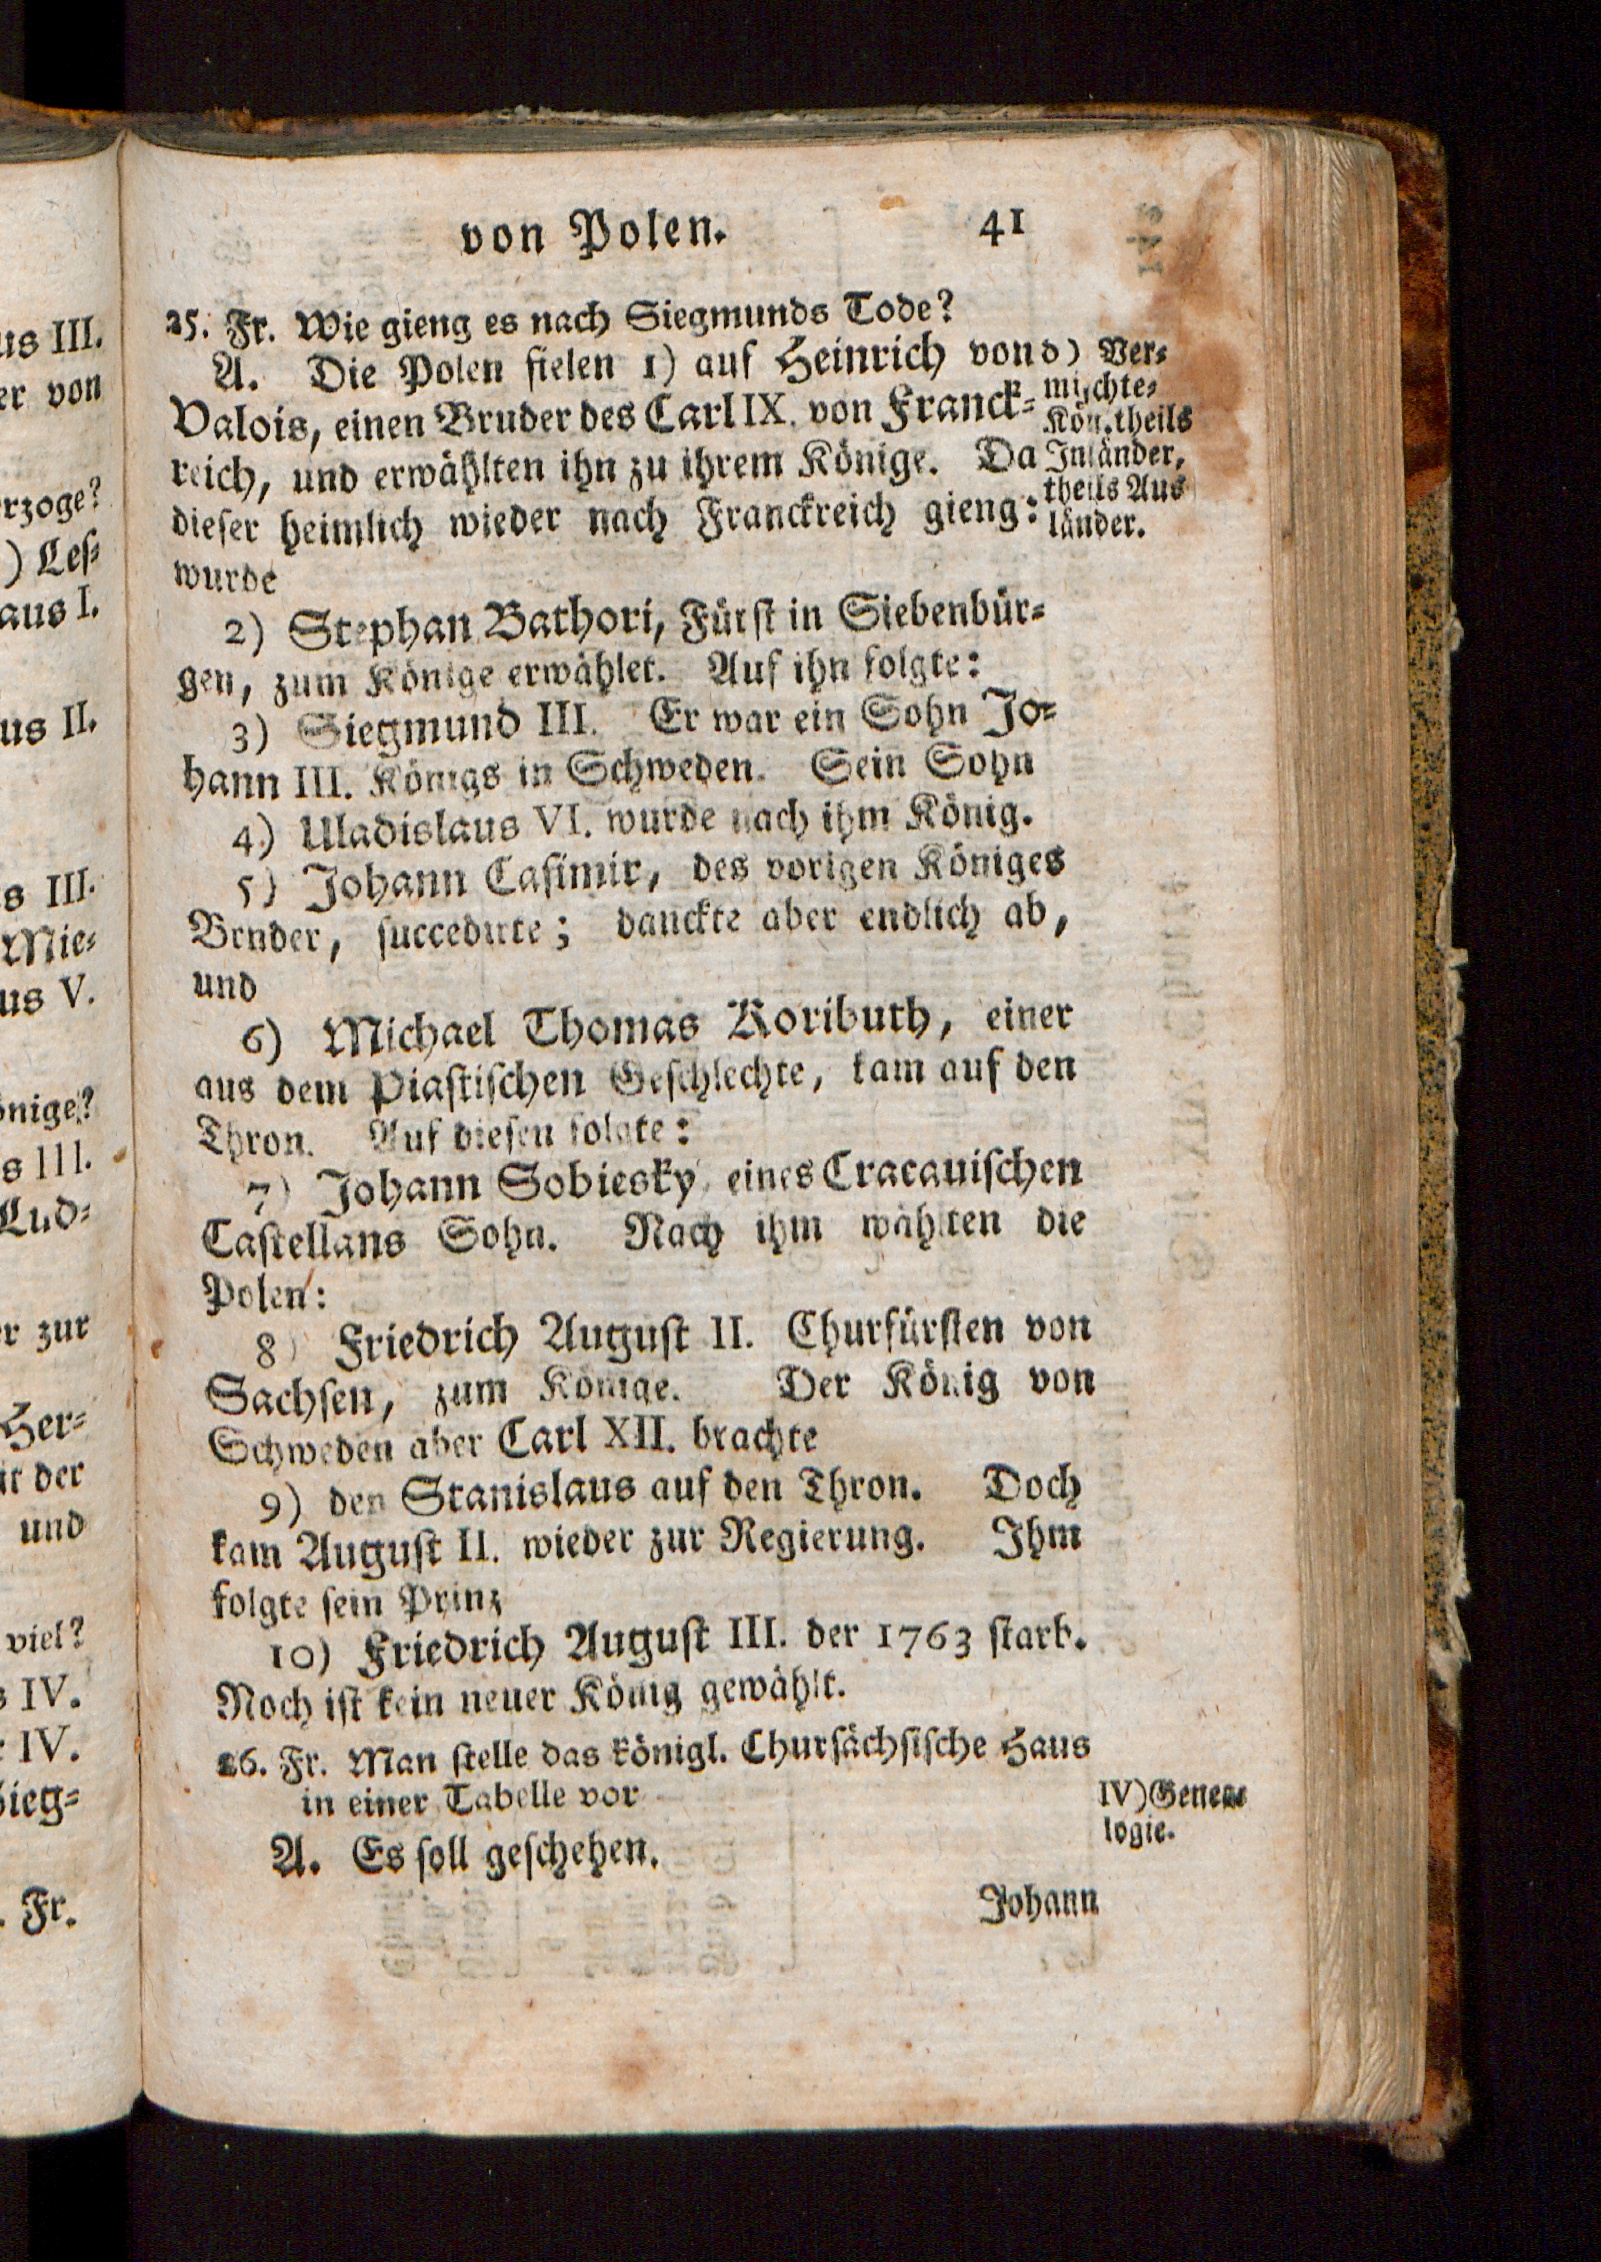 us III.
er von
rzoge?
) Leſ⸗
aus I.
us II.
s III.
Mie⸗
us V.
önige?
s III.
Lud⸗
er zur
Her⸗
it der
und
viel?
s IV.
r IV.
Sieg⸗
. Fr.
von Polen. 41
25. Fr. Wie gieng es nach Siegmunds Tode?
A. Die Polen fielen 1) auf Heinrich von
Valois, einen Bruder des Carl IX. von Franck⸗
reich, und erwählten ihn zu ihrem Könige. Da
dieſer heimlich wieder nach Franckreich gieng:
wurde
d) Ver⸗
miſchte⸗
Kön. theils
Inländer,
theils Aus
länder.
2) Stephan Bathori, Fürſt in Siebenbür⸗
gen, zum Könige erwählet. Auf ihn folgte:
3) Siegmund III. Er war ein Sohn Jo⸗
hann III. Königs in Schweden. Sein Sohn
4) Uladislaus VI. wurde nach ihm König.
5) Johann Caſimir, des vorigen Königes
Brnder, ſuccedirte; danckte aber endlich ab,
und
6) Michael Thomas Koributh, einer
aus dem Piaſtiſchen Geſchlechte, kam auf den
Thron. Auf dieſen folgte:
7) Johann Sobiesky eines Cracauiſchen
Caſtellans Sohn. Nach ihm wählten die
Polen:
8) Friedrich Auguſt II. Churfürſten von
Sachſen, zum Könige. Der König von
Schweden aber Carl XII. brachte
9) den Stanislaus auf den Thron. Doch
kam Auguſt II. wieder zur Regierung. Ihm
folgte ſein Prinz
10) Friedrich Auguſt III. der 1763 ſtarb.
Noch iſt kein neuer König gewählt.
26. Fr. Man ſtelle das königl. Churſächſiſche Haus
in einer Tabelle vor
IV) Genea⸗
logie.
A. Es ſoll geſchehen.
Johann